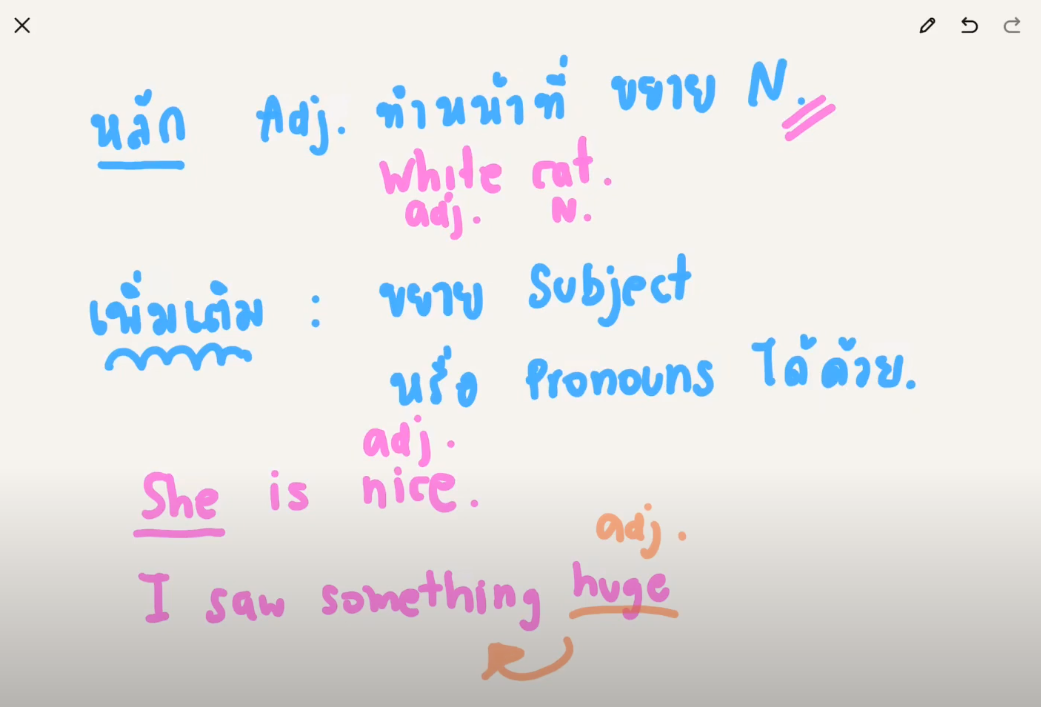 หลัก Adj. ทำหน้าที่ ขยาย N.
White cat.
adj. N.
เพิ่มเติม : ขยาย Subject
หรือ Pronouns ได้ด้วย.
adj.
She is nice.
adj.
I saw something huge